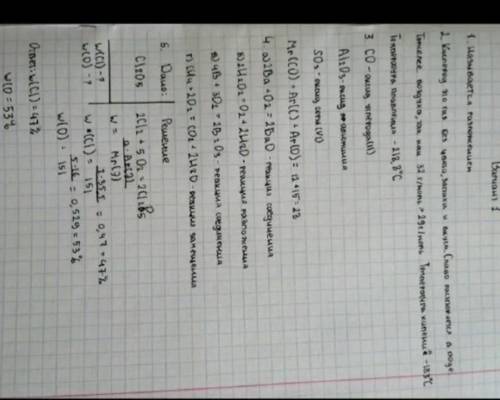 Вариант 1
1. Называется разложением
2. Кислород это газ без цвета, запаха и вкуса. Плохо растворяется в воде.
Тяжелее воздуха, так как 32 г/моль > 29 г/моль Температура кипения -183°C
Температура плавления -218,8°C
3. CO - оксид углерода (II)
Al₂O₃ - оксид алюминия
SO₃ - оксид серы (VI)
Mr(CO) = Ar(C) + Ar(O) = 12 + 15 = 28
4. а) 2Ba + O₂ = 2BaO - реакция соединения
б) 2H₂O₂ = O₂ + 2H₂O - реакция разложения
в) 4B + 3O₂ = 2B₂O₃ - реакция соединения
г) CH₄ + 2O₂ = CO₂ + 2H₂O - реакция замещения
5. Дано: Решение
Cl₂O₅ 2Cl₂ + 5O₂ = 2Cl₂O₅
W(Cl) - ?
W(O) - ?
W(Cl) = 2·35,5 / 151 = 0,47 = 47%
W(O) = 5·16 / 151 = 0,529 = 53%
Ответ: W(Cl) = 47%
W(O) = 53%